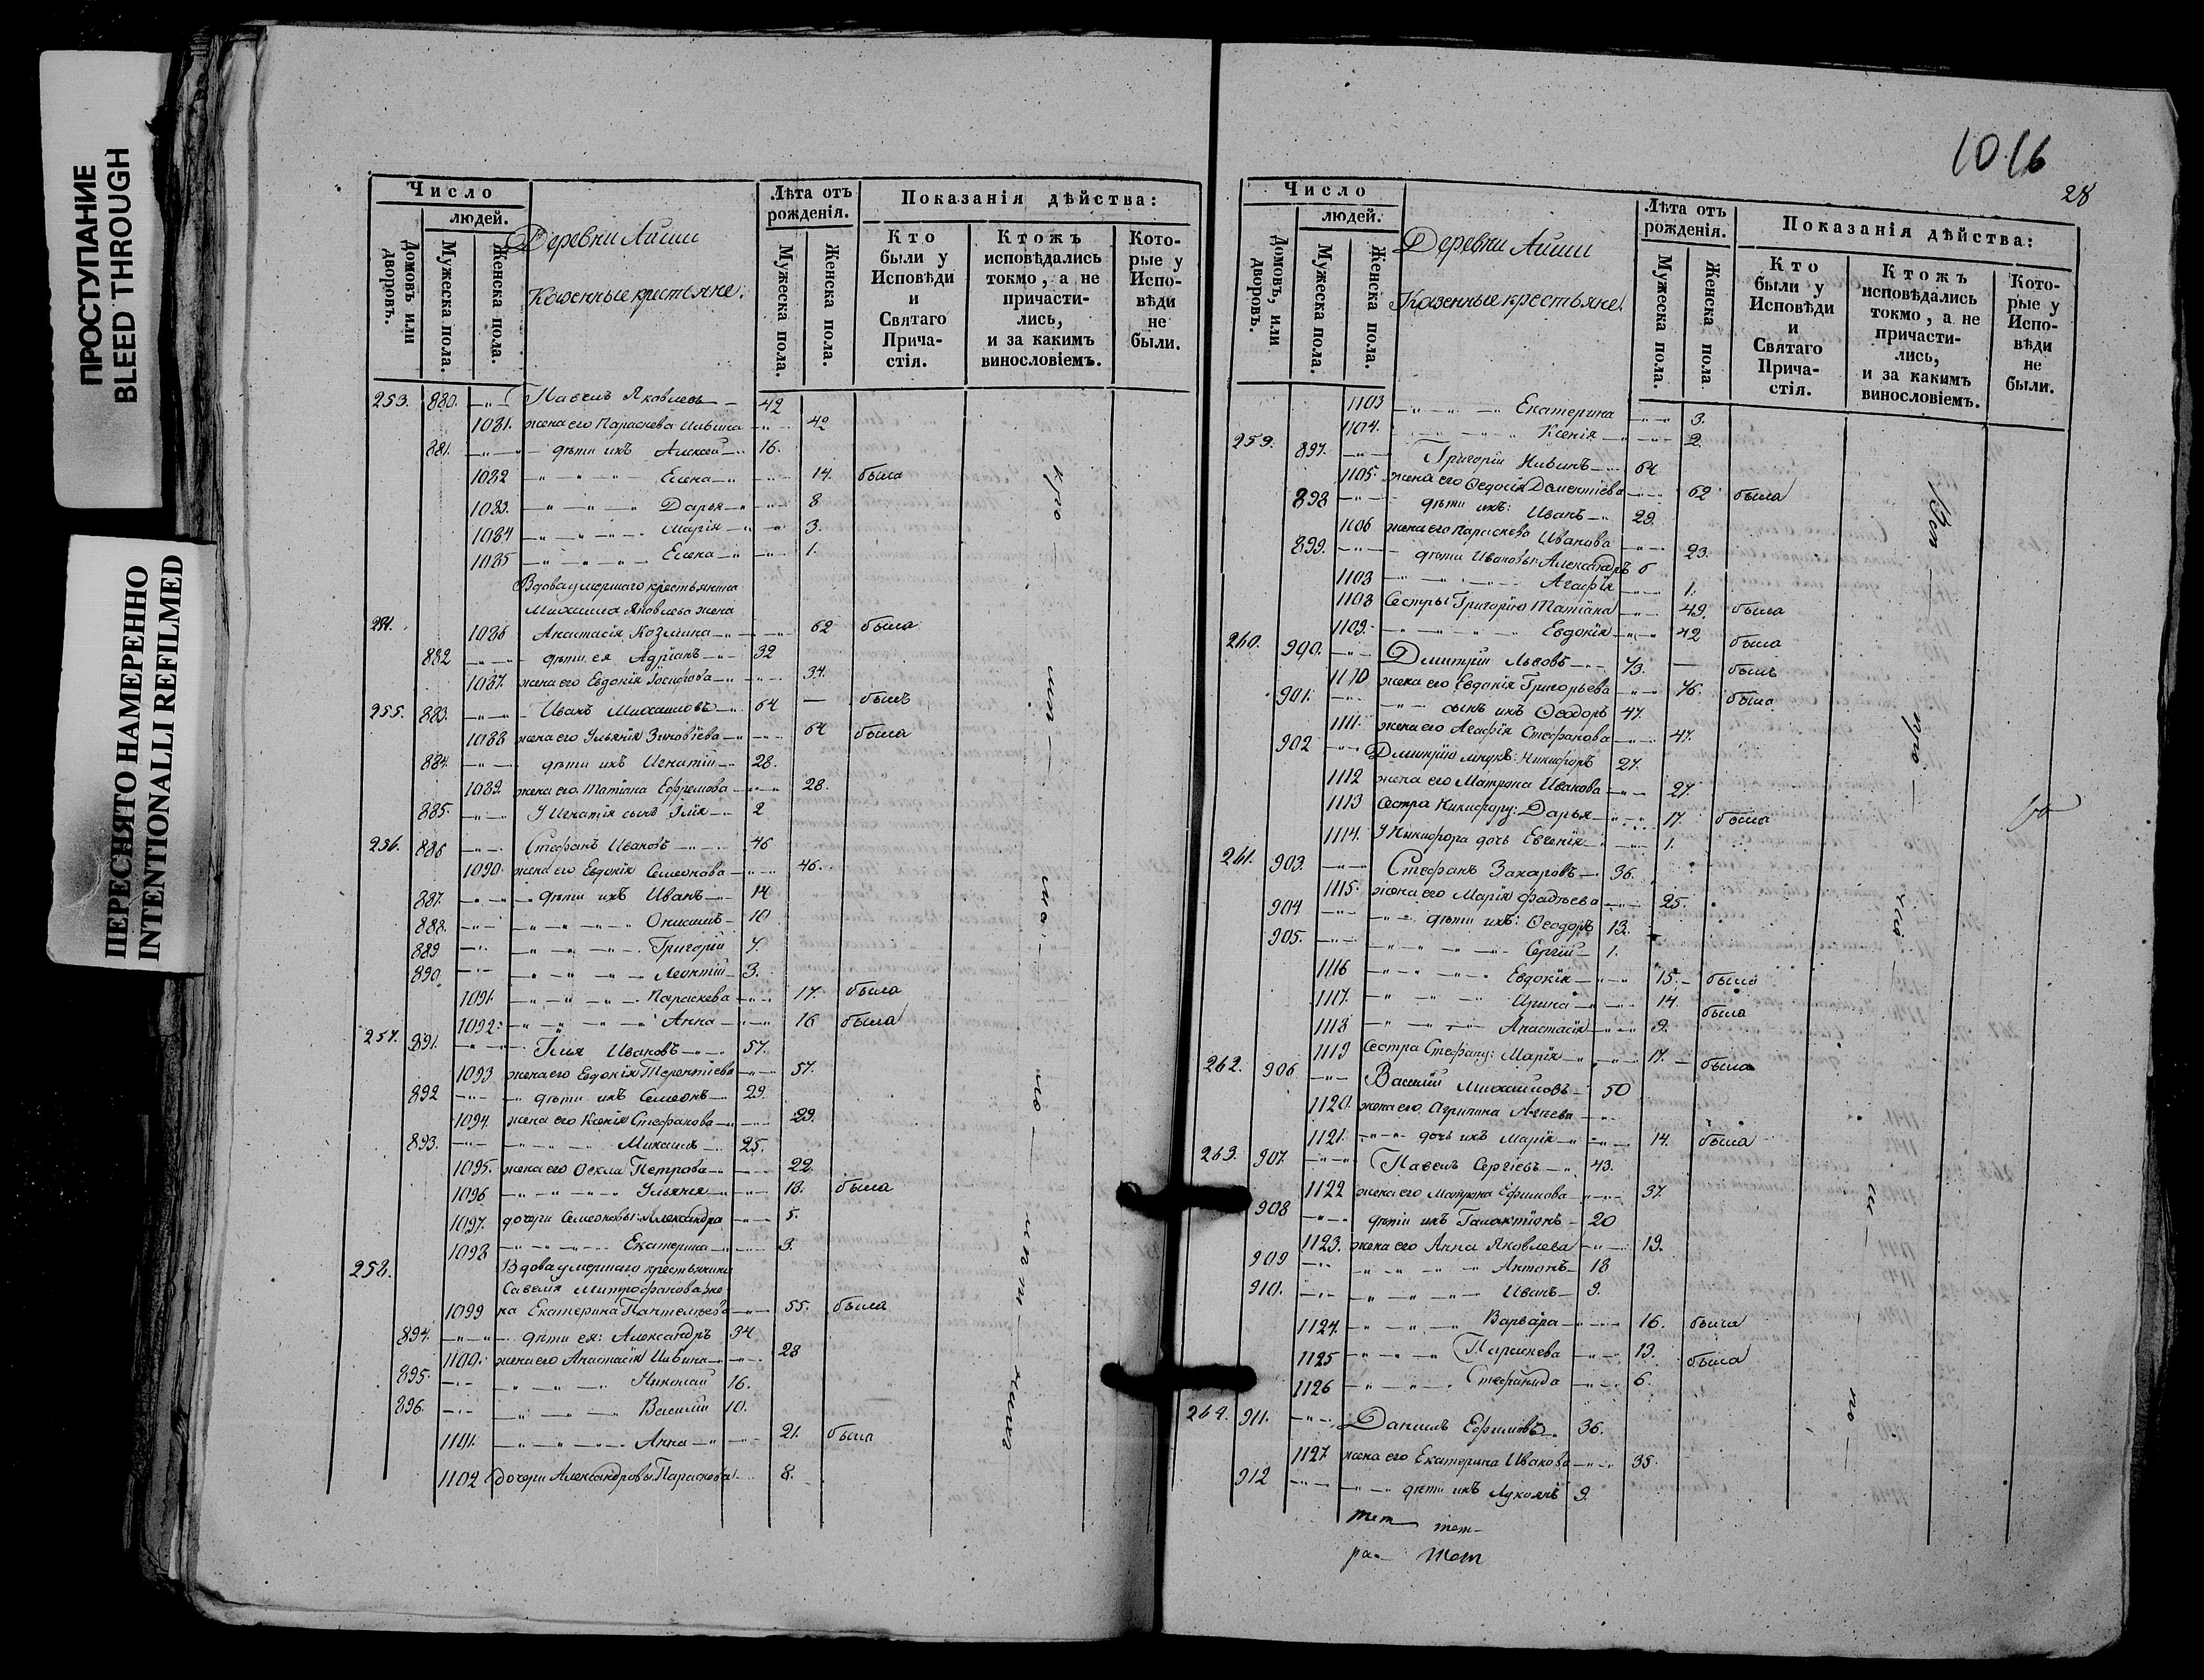 ПРОСТУПАНИЕ
BLEED THROUGH
ПЕРЕСНЯТО НАМЕРЕННО
INTENTIONALLI REFILMED
Число
людей.
Домовъ или дворовъ.
Мужеска пола.
Женска пола.
Деревни Айши
Казенные крестьяне:
Лѣта отъ рожденія.
Мужеска пола.
Женска пола.
Показанія дѣйства:
Кто были у Исповѣди и Святаго Прича-стія.
Ктожъ исповѣдались токмо, а не причасти-лись, и за какимъ винословіемъ.
Кото-рые у Испо-вѣди не были.
253. 880. Павелъ Яковлевъ 42
1081. жена его Параскева Ильина 42
881. дѣти ихъ Алексѣй 16.
1082 Елена 14. была
1083. Дарья 8
1084 Марія 3.
1085 Елена 1.
Вдова умершаго крестьянина
Михаила Яковлева жена
254. 1086 Анастасія Козмина 62 была
882 дѣти ея Адріанъ 32
1087. жена его Евдокія Іосифова 34.
255. 883. Иванъ Михаиловъ 64 — былъ
1088 жена его Ульянія Зиновіева 64 была
884. дѣти ихъ Игнатій 28.
1089. жена его Татіана Ефремова 28.
885. У Игнатія сынъ Илія 2
256. 886 Стефанъ Ивановъ 46
1090. жена его Евдокія Семеонова 46.
887. дѣти ихъ Иванъ 14
888. Онисимъ 10
889 Григорій 7.
890. Леонтій 3.
1091. Параскева 17. была
1092. Анна 16 была
257. 891. Илья Ивановъ 57.
1093 жена его Евдокія Терентіева 57.
892 дѣти ихъ Семеонъ 29.
1094. жена его Ксенія Стефанова 29.
893. Михаилъ 25.
1095. жена его Ѳекла Петрова 22.
1096 Ульянія 18. была
1097. дочери Семеоновы: Александра 5.
1098 Екатерина 3.
258. Вдова умершаго крестьянина
Савелія Митрофанова же
1099 на Екатерина Пантелѣева 55. была
894. дѣти ея: Александръ 34
1100. жена его Анастасія Ильина 28
895. Николай 16.
896. Василій 10.
1101. Анна 21. была
1102 дочери Александровы: Параскева 8.
1016
28
Число
людей.
Домовъ, или дворовъ.
Мужеска пола.
Женска пола.
Деревни Айши
Казенные крестьяне.
Лѣта отъ рожденія.
Мужеска пола.
Женска пола
Показанія дѣйства:
Кто были у Исповѣди и Святаго Прича-стія.
Ктожъ исповѣдались токмо, а не причасти-лись, и за какимъ винословіемъ.
Кото-рые у Испо-вѣди не были.
1103 Екатерина 3.
1104. Ксенія 2.
259. 897. Григорій 64
1105. жена его Ѳедосія Дементіева 62 была
898 дѣти ихъ: Иванъ 29.
1106 жена его Параскева Иванова 23.
899. дѣти Ивановы: Александръ 5
1103 Агафія 1.
1108 Сестры Григорію Татіана 49. была
1109. Евдокія 42 была
260. 900. Дмитрій Львовъ 73. — былъ
1110 жена его Евдокія Григорьева 76. была
901. сынъ ихъ Ѳеодоръ 47.
1111. жена его Агафія Стефанова 47.
902 Дмитрію внукъ: Никифоръ 27.
1112 жена его Матрона Иванова 27.
1113 Сестра Никифору: Дарья 17. была
1114. У Никифора дочь Евгенія 1.
261. 903. Стефанъ Захаровъ 36.
1115. жена его Марія Фадѣева 25.
904 дѣти ихъ: Ѳеодоръ 13.
905. Сергій 1.
1116 Евдокія 15. была
1117. Ирина 14. была
1118 Анастасія 9.
1119 Сестра Стефану: Марія 17. была
262. 906 Василій Михайловъ 50
1120. жена его Агрипина
1121. дочь ихъ Марія 14. была
263. 907. Павелъ Сергіевъ 43.
1122 жена его Матрона Ефимова 37.
908 дѣти ихъ Галактіонъ 20
1123. жена его Анна Яковлева 19.
909 Антонъ 18
910. Иванъ 9.
1124. Варвара 16. была
1125 Параскева 13. была
1126 Стефанида 6.
264. 911. Даніилъ Ефимовъ 36.
1127. жена его Екатерина Иванова 35.
912 дѣти ихъ Лукоянъ 9.